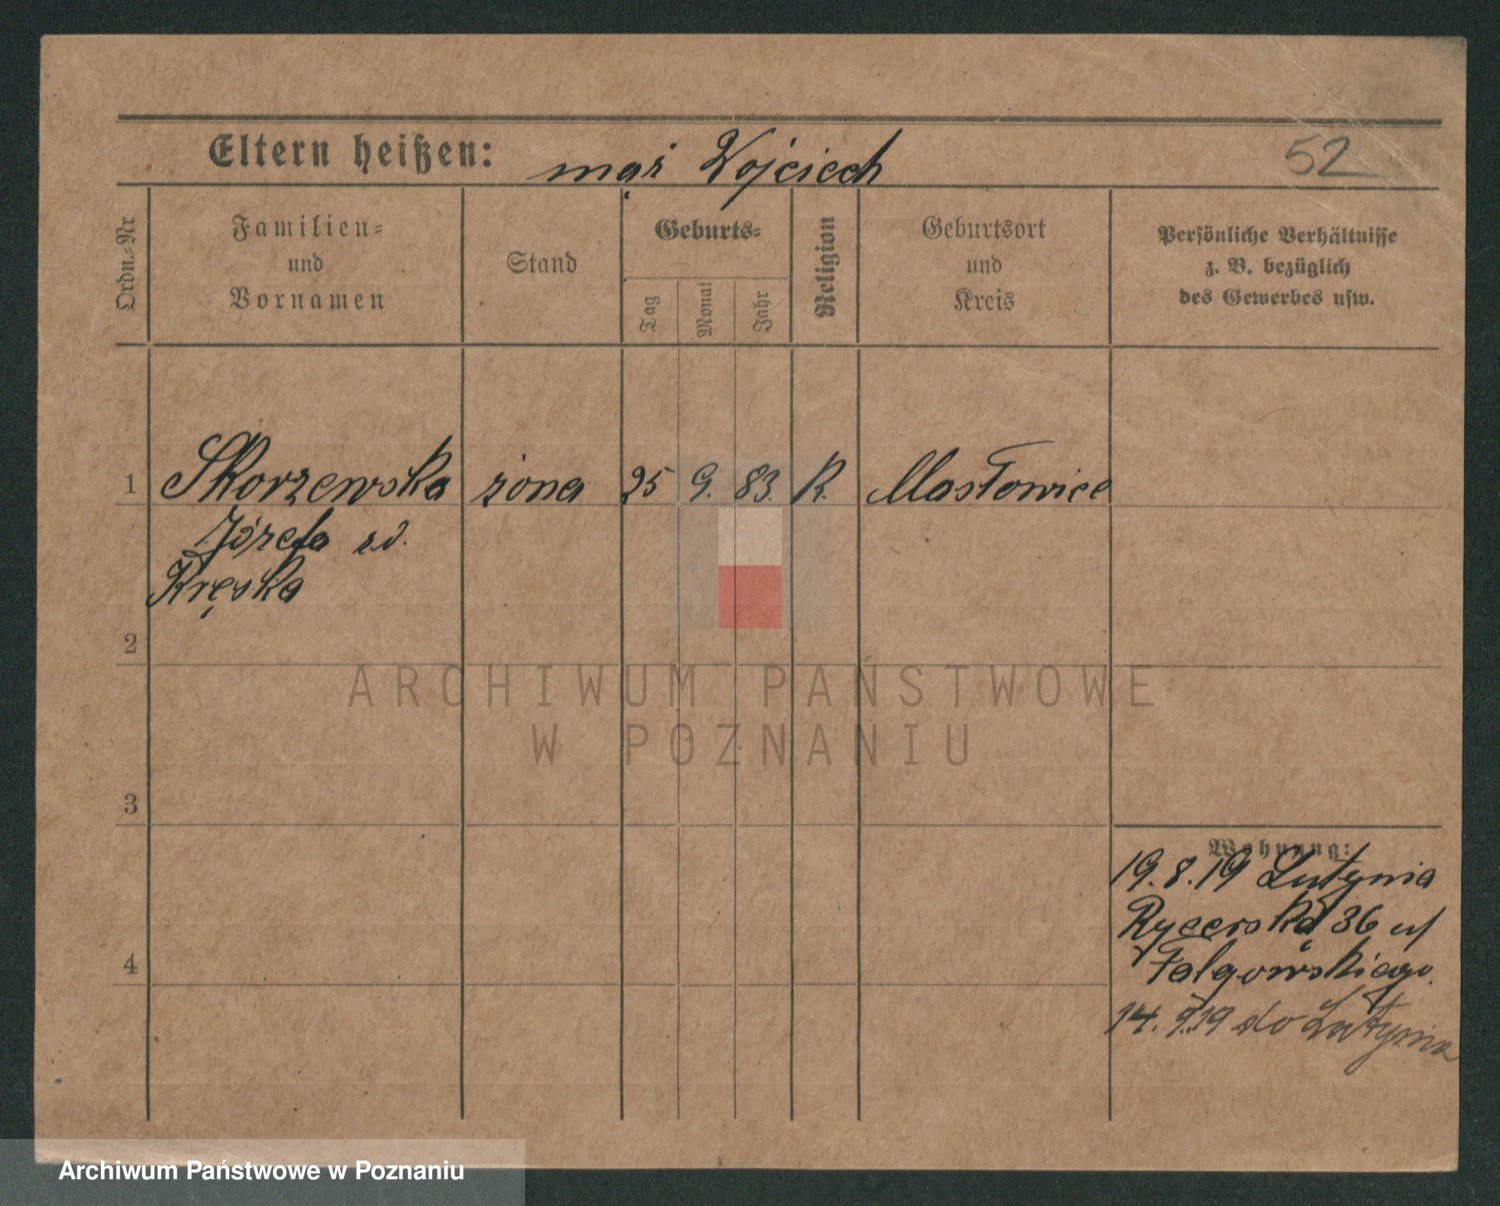 Eltern heißen: mąż Wojciech 52
Ordn.-Nr
Familien-
und
Vornamen
Stand
Geburts-
Tag Monat Jahr
Religion
Geburtsort
und
Kreis
Persönliche Verhältnisse
z. B. bezüglich
des Gewerbes usw.
1 Skorzewska żona 25 9. 83. R. Masłowice
Józefa z d.
Kręska
2
ARCHIWUM PAŃSTWOWE
W POZNANIU
3
Wohnung:
19.8.19 Lutynia
Rycerska 36 u
4 Falgowskiego.
14.9.19 do Lutynia
Archiwum Państwowe w Poznaniu